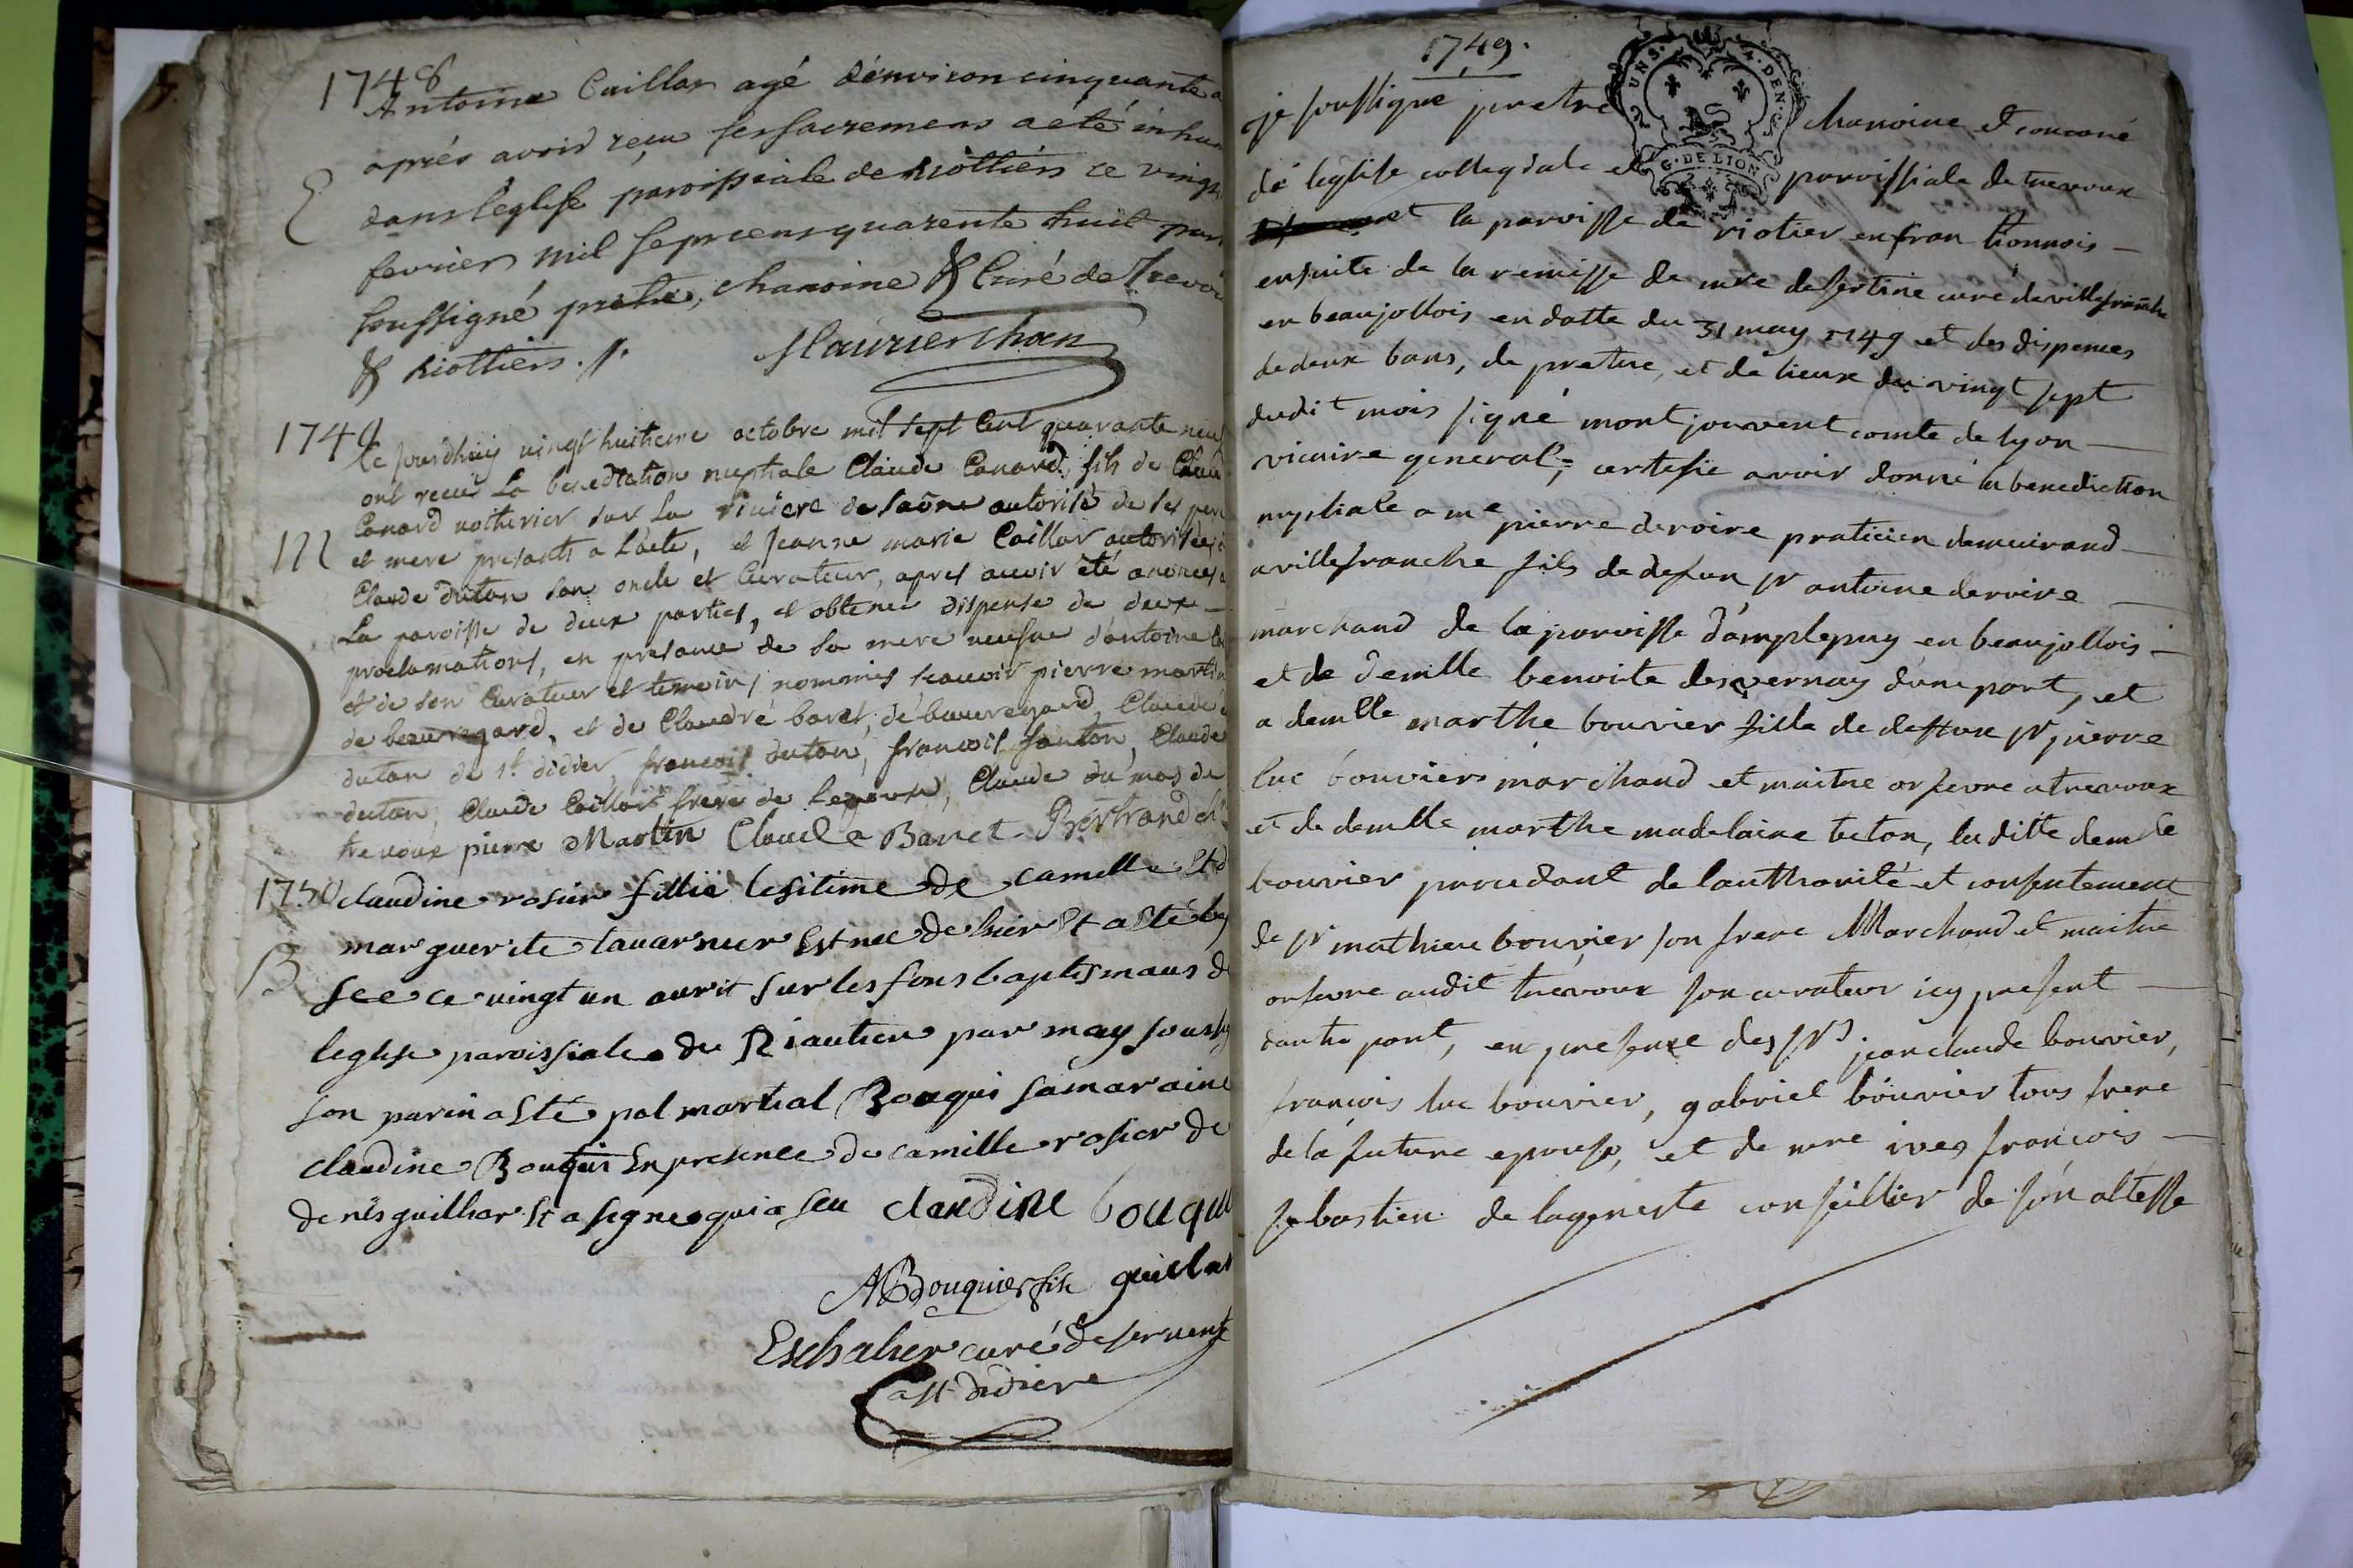 1748
Antoine Caillar agé d'environ cinquante a
aprés avoir reçu ses sacremens a eté inhu
dans l'eglise paroissiale de Riottiers ce vingt
fevrier mil sept cens quarente huit par
soussigné pretre, chanoine & Curé de Trevou
& Riottiers.
1749
Ce jourdhuy vingt huitieme octobre mil sept cent quarante neuf
ont receu La benediction nuptiale Claude Canard fils de Claude
Canard voiturier sur La riviere de saône autorisé de ses pere
M et mere presents a L'acte, et Jeanne marie Caillar autorisée
Claude duton son oncle et Curateur, apres avoir été anoncés
La paroisse de deux parties, et obtenu dispense de deux
proclamations, en presance de sa mere veusve d'antoine
et de son Curateur et temoins nommés scavoir pierre martin
de beauregard, et de Claudré baret, de beauregard, Claude
duton de st. didier, francois duton, francois santon, Claude
duton, Claude Caillar frere de l'epouse, Claude du mas de
trevoux pierre Martin Claude Baret Bertrand ch
1750 claudine rosier fillie legitime de camille Et d
marguerite tavernier Est nee de hier Et a Eté ba
B see ce vingt un avrit sur les fons baptismaus de
leglise paroissiale de Riautier par moy soussig
son parin a Eté pol martial Bouqui sa maraine
claudine Bouqui En presence de camille rosier de
denis guilliar Et a signe qui a seu claudine bouqui
ABouquier fils guillar
Eschalier curé deservent
a st didiere
1749.
je soussigné pretre chanoine et concuré
UNS. 4. DEN.
G. DE LION
de leglise collegiale et paroissiale de trevoux
et la paroisse de riotier en fran lionnois
ensuite de la remisse de mre desertine curé de villefranche
en beaujollois en datte du 31 may 1749 et des dispenses
de deux bans, de pretre, et de lieux du vingt sept
dudit mois signé montjouvent comte de lyon
vicaire general; certefie avoir donné la benediction
nuptiale a me pierre deroire praticien demeurand
a villefranche fils de defun sr antoine deroire
marchand de la paroisse d'amplepuy en beaujollois
et de demlle benoite desvernay d'une part, et
a demlle marthe bouvier fille de deffun sr pierre
luc bouvier marchand et maitre orfevre a trevoux
et de demlle marthe madelaine teton, la ditte demlle
bouvier procedant de l'authorité et consentement
de sr mathieu bouvier son frere Marchand et maitre
orfevre audit trevoux son curateur icy present
dautre part, en presence des srs jean claude bouvier,
francois luc bouvier, gabriel bouvier tous frere
de la future epouse, et de mre ives francois
sebastien de lageneste conseillier de son altesse